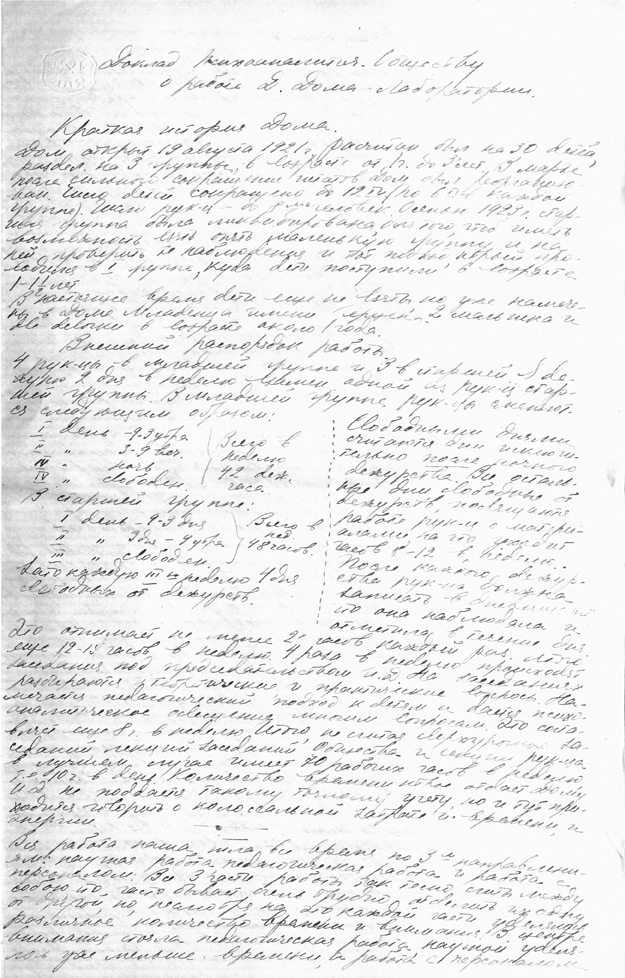 Доклад Психоаналитич. Обществу
о работе Д. Дома-Лаборатории.
Краткая история дома.
Дом открыт 19 августа 1921 г. Расчитан был на 30 детей
раздел. на 3 группы, в возрасте от 1 г. до 5 лет. В марте
после сильного сокращения штатов дом был реорганизо-
ван. Число детей сокращено до 12ти (по 6ти каждой
группе). Осенью 1925 г. стар-
шая группа была ликвидирована для того, что иметь
возможность взять опять маленькую группу и на
ней проверить те наблюдения и тот первый про-
в 1 группе, куда дети поступили в возрасте
1-1½ лет.
В настоящее время дети еще не взяты но уже намече-
ны в Доме Младенца имени 2 мальчика и
две девочки в возрасте около 1 года.
Внешний распорядок работы.
4 рук-цы в младшей группе и 3 в старшей
2 дня в неделю одной из рук-ц стар-
шей группы. В младшей группе рук-цы
ся следующим образом:
I день - 9-3 утра
II " 3-9 веч.
IV " ночь
IV " свободен.
Всего в
неделю
42 деж.
часа
В старшей группе:
I день - 9-3 дня
II " 3 дня - 9 утра
III " свободен.
Всего в
нед.
48 часов.
Зато каждую III ю неделю 4 дня
свободных от дежурств.
Свободными днями
считаются дни исключи-
тельно после ночного
дежурства. Все осталь-
ные дни свободные от
дежурств, посвящаются
работе рук-ц с матери-
алами на что уходит
часов 8-12 в неделю.
После каждого дежур-
ства рук-ца должна
записать в
что она наблюдала и
отметила в течение дня
Это отнимает не менее 2х часов каждый раз
еще 12-15 часов в неделю. 4 раза в неделю происходят
заседания под председательством И.Д. На заседаниях
разбираются теоретические и практические вопросы. На-
мечается педагогический подход к детям и дается психо-
аналитическое освещение многим вопросам. Это соста-
вляет еще 8 г. в неделю. Итого, не считая за-
седаний лекций заседаний, Общества и секции рук-ца
в лучшем случае имеет 70 рабочих часов в неделю
т.е. 10 г. в день. Количество времени отдает дому
И.Д. не поддается такому точному учету, но и тут при-
ходится говорить о колоссальной затрате и времени, и
энергии.
Вся работа наша шла все время по 3м направлени-
ям: научная работа педагогическая работа и работа с
персоналом. Все 3 части работы так тесно между
собою, что часто бывает очень трудно отделить их одну
от другой но, несмотря на это каждой части уделялось
различное количество времени и внимания. В центре
внимания стояла педагогическая работа, научной уделя-
лось уже меньше времени, а работа с персоналом